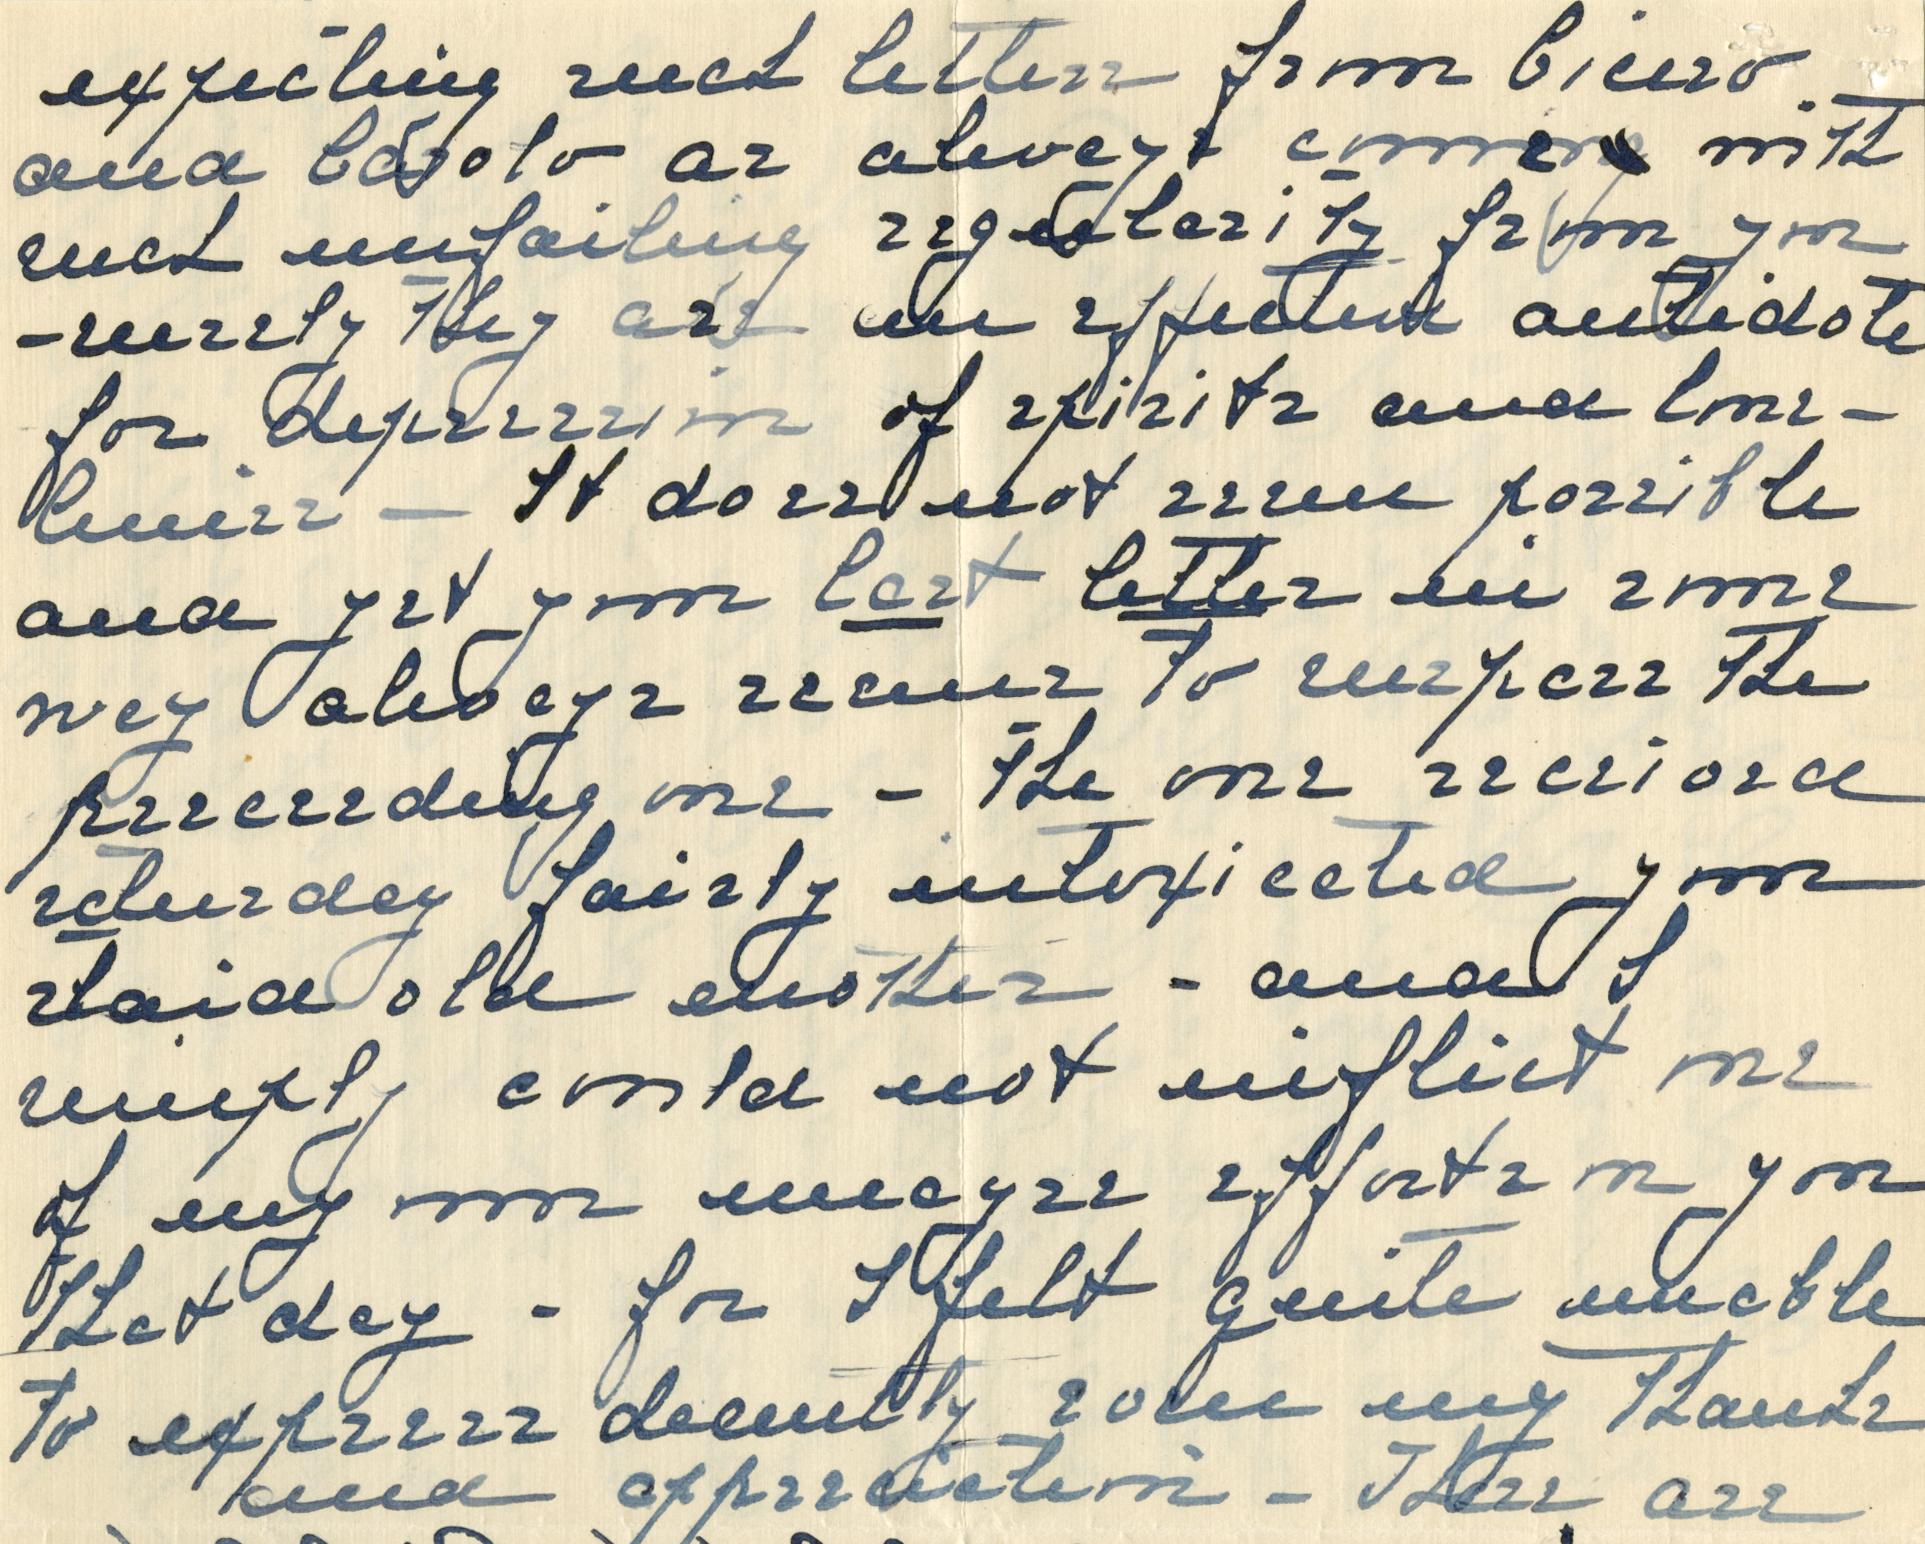 expecting such letters from Cicero
and Cásolo as always comes with
such unfailing regularity from you
- surely they are an effective antidote
for depression of spirits and lone-
liness - It does not seem possible
and yet your last letter in some
way always seems to surpass the
preceeding one - The one received
saturday fairly intoxicated your
staid old mother - and I
simply could not inflict one
of my own meagre efforts on you
that day - for I felt quite unable
to express decently some my thanks
and appreciation - There are